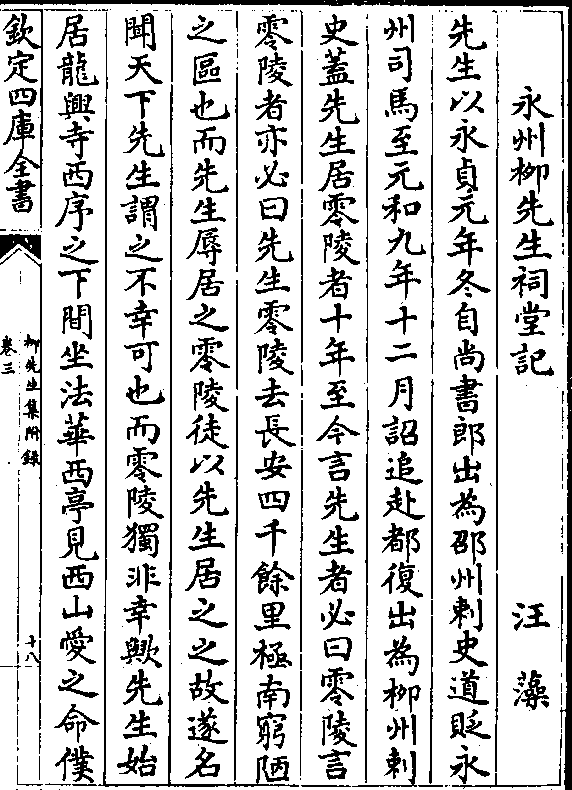 永州柳先生祠堂記　　　　汪藻
先生以永貞元年冬自尚書郎出為邵州刺史道貶永
州司馬至元和九年十二月詔追赴都復出為柳州刺
史蓋先生居零陵者十年至今言先生者必曰零陵言
零陵者亦必曰先生零陵去長安四千餘里極南窮陋
之區也而先生辱居之零陵徒以先生居之之故遂名
聞天下先生謂之不幸可也而零陵獨非幸歟先生始
居龍興寺西序之下間坐法華西亭見西山愛之命僕
欽定四庫全書
柳先生集附錄
卷三
十八